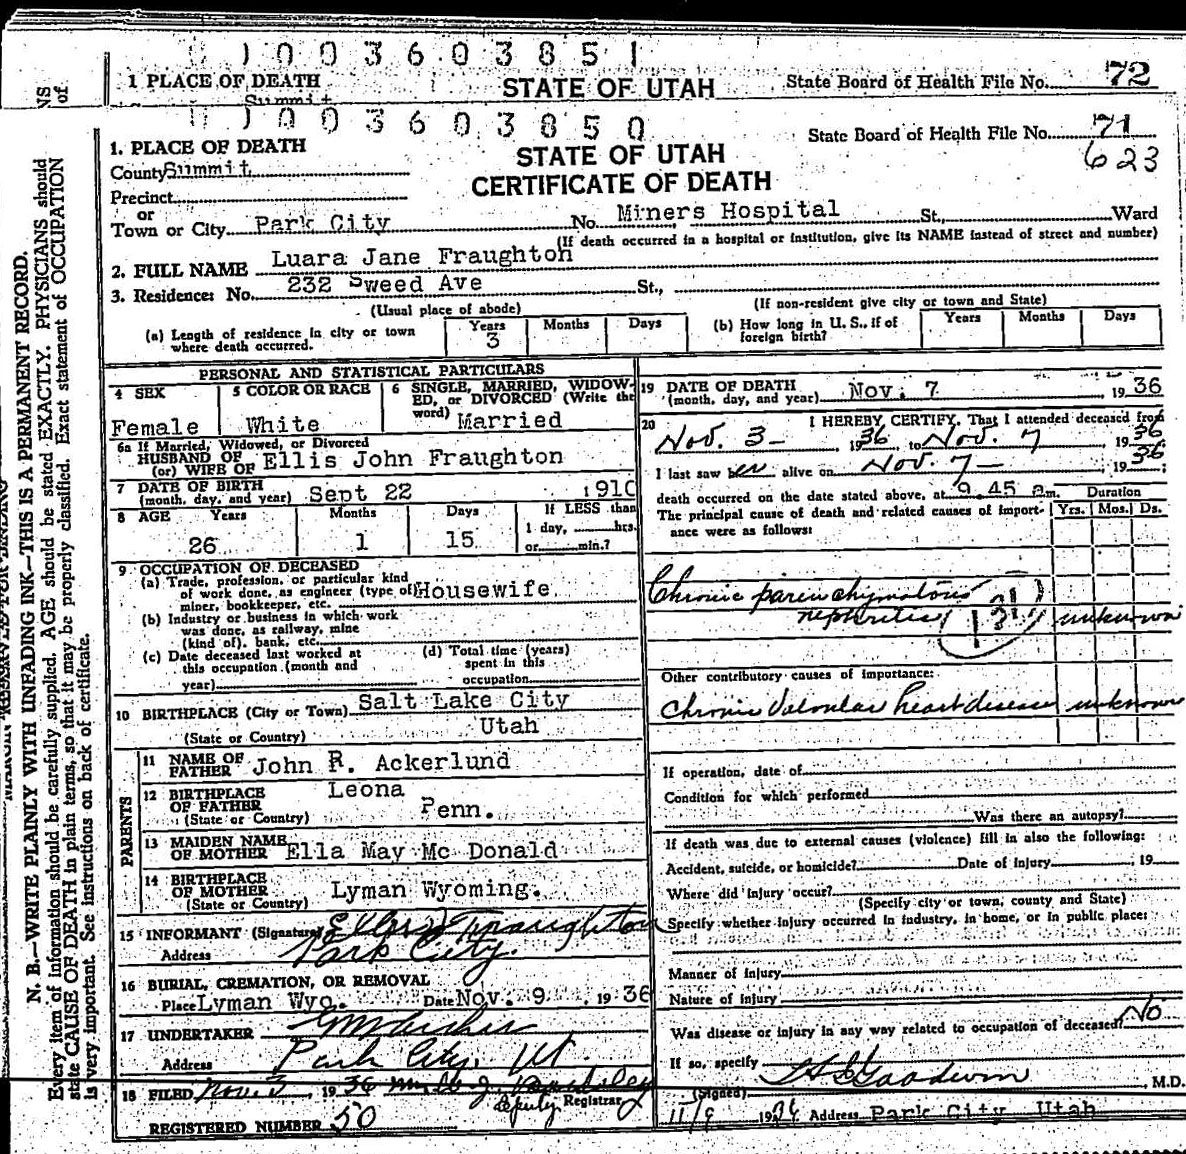 1 0 0 3 6 0 3 8 5 1
1 PLACE OF DEATH STATE OF UTAH State Board of Health File No. 72
Summit
1 0 0 3 6 0 3 8 5 0
State Board of Health File No. 71
623
1. PLACE OF DEATH STATE OF UTAH
County Summit CERTIFICATE OF DEATH
Precinct
or
Town or City Park City No. Miners Hospital St., Ward
(If death occurred in a hospital or institution, give its NAME instead of street and number)
2. FULL NAME Luara Jane Fraughton
3. Residence: No. 232 Sweed Ave St.,
(Usual place of abode) (If non-resident give city or town and State)
(a) Length of residence in city or town where death occurred. Years 3 Months Days
(b) How long in U. S., if of foreign birth? Years Months Days
PERSONAL AND STATISTICAL PARTICULARS
4 SEX Female
5 COLOR OR RACE White
6 SINGLE, MARRIED, WIDOWED, or DIVORCED (Write the word) Married
6a If Married, Widowed, or Divorced
HUSBAND OF
(or) WIFE OF Ellis John Fraughton
7 DATE OF BIRTH
(month, day, and year) Sept 22 1910
8 AGE Years 26 Months 1 Days 15 If LESS than
1 day, hrs.
or min.?
9 OCCUPATION OF DECEASED
(a) Trade, profession, or particular kind
of work done, as engineer (type of) Housewife
miner, bookkeeper, etc.
(b) Industry or business in which work
was done, as railway, mine
(kind of), bank, etc.
(c) Date deceased last worked at
this occupation (month and
year)
(d) Total time (years)
spent in this
occupation
10 BIRTHPLACE (City or Town) Salt Lake City
(State or Country) Utah
PARENTS
11 NAME OF
FATHER John R. Ackerlund
12 BIRTHPLACE
OF FATHER Leona
(State or Country) Penn.
13 MAIDEN NAME
OF MOTHER Ella May Mc Donald
14 BIRTHPLACE
OF MOTHER
(State or Country) Lyman Wyoming.
15 INFORMANT (Signature) Ellis J Fraughton
Address Park City.
16 BURIAL, CREMATION, OR REMOVAL
Place Lyman Wyo. Date Nov. 9 1936
17 UNDERTAKER
Address Park City, Ut.
18 FILED Nov. 3, 1936
Deputy Registrar
REGISTERED NUMBER 50
19 DATE OF DEATH
(month, day, and year) Nov. 7 1936
20 I HEREBY CERTIFY, That I attended deceased from
Nov. 3- 1936 to Nov. 7 1936
I last saw her alive on Nov. 7- 1936;
death occurred on the date stated above, at 9.45 a m.
The principal cause of death and related causes of importance were as follows:
Duration
Yrs. Mos. Ds.
Chronic parenchymatous
nephritis 131 unknown
Other contributory causes of importance:
Chronic Valvular heart disease unknown
If operation, date of
Condition for which performed
Was there an autopsy?
If death was due to external causes (violence) fill in also the following:
Accident, suicide, or homicide? Date of injury 19
Where did injury occur?
(Specify city or town, county and State)
Specify whether injury occurred in industry, in home, or in public place:
Manner of injury
Nature of injury
Was disease or injury in any way related to occupation of deceased? No
If so, specify
(Signed) Goodwin, M.D.
11/9 1936 Address Park City Utah
N. B.—WRITE PLAINLY WITH UNFADING INK—THIS IS A PERMANENT RECORD.
Every item of information should be carefully supplied. AGE should be stated EXACTLY. PHYSICIANS should
state CAUSE OF DEATH in plain terms, so that it may be properly classified. Exact statement of OCCUPATION
is very important. See instructions on back of certificate.